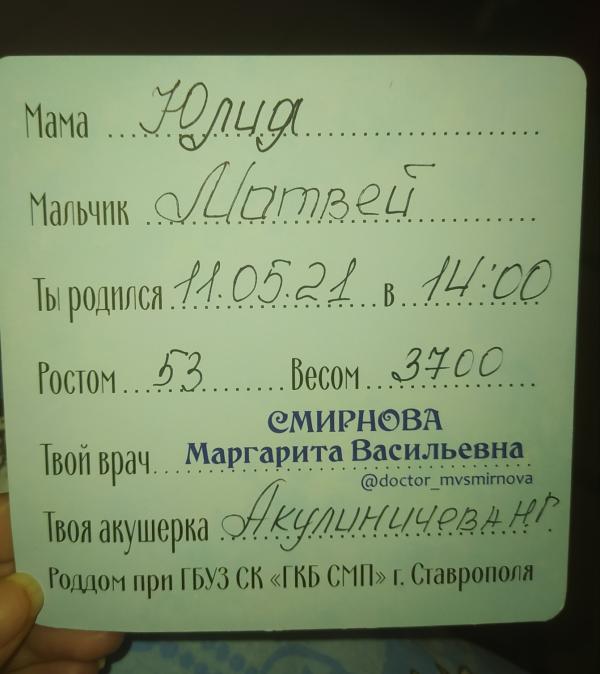 Мама Юлия
Мальчик Матвей
Ты родился 11.05.21 в 14:00
Ростом 53 Весом 3700
СМИРНОВА
Твой врач Маргарита Васильевна
@doctor_mvsmirnova
Твоя акушерка Акулиничева Н.Г.
Роддом при ГБУЗ СК «ГКБ СМП» г. Ставрополя